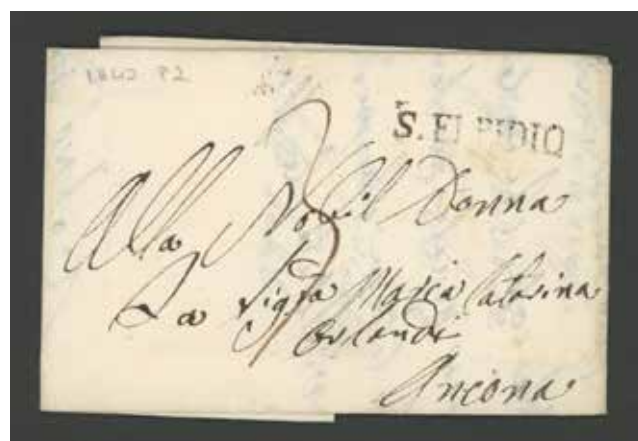 S. ELPIDIO
Alla Nobil Donna
La Sigra Maria Catarina
Orlandi
Ancona